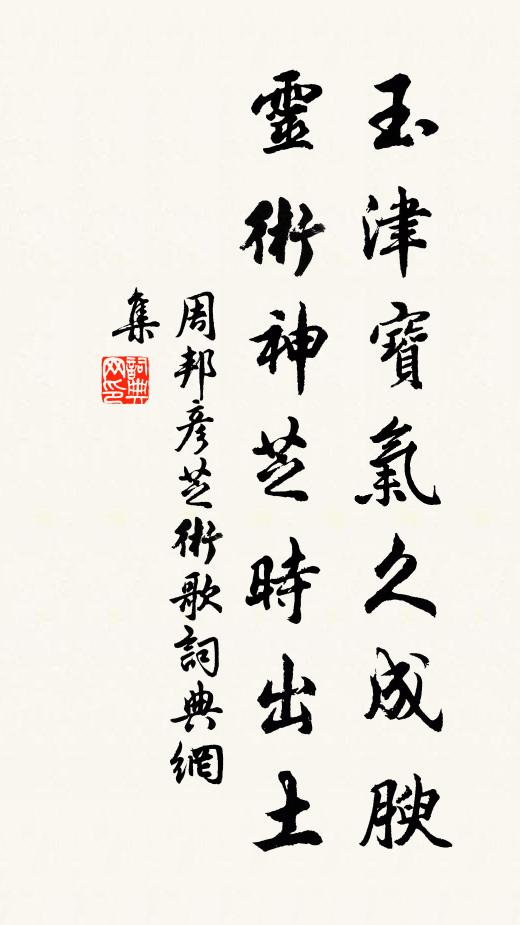 玉津寶氣久成腴
靈術神芝時出土
周邦彦芝術歌詞典網
集
詞典
网印